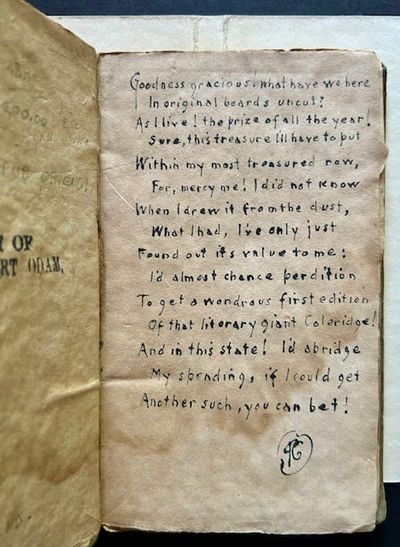 R OF
RT ODAM,
Goodness gracious! What have we here
In original boards uncut?
As I live! the prize of all the year!
Sure, this treasure I'll have to put
Within my most treasured row,
For, mercy me! I did not know
When I drew it from the dust,
What I had, I've only just
Found out its value to me:
I'd almost chance perdition
To get a wondrous first edition
Of that literary giant Coleridge!
And in this state! I'd abridge
My spending, if I could get
Another such, you can bet!